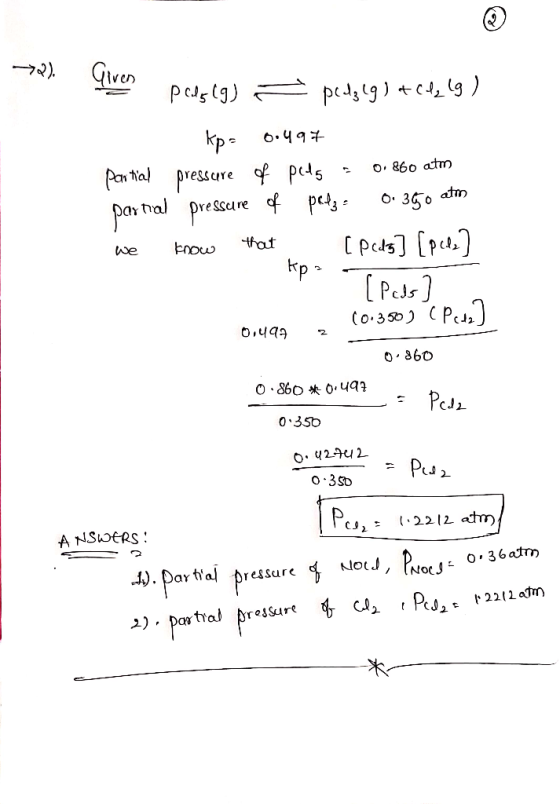 ②
→2). Given
pcl5(g) ⇌ pcl3(g) + cl2(g)
kp = 0.497
Partial pressure of pcl5 = 0.860 atm
partial pressure of pcl3 = 0.350 atm
we know that kp = [Pcl3] [Pcl2] / [Pcl5]
0.497 = (0.350) (Pcl2] / 0.860
0.860 * 0.497 / 0.350 = Pcl2
0.42742 / 0.350 = Pcl2
Pcl2 = 1.2212 atm
ANSWERS:
1). partial pressure of Nocl, PNocl = 0.36atm
2). partial pressure of cl2, Pcl2 = 1.2212 atm